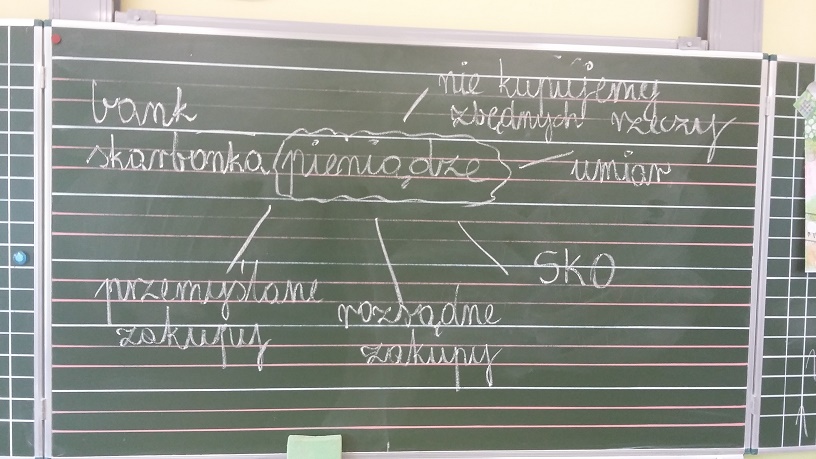 bank
nie kupujemy
zbędnych rzeczy
skarbonka
pieniądze
umiar
SKO
przemyślane
zakupy
rozsądne
zakupy